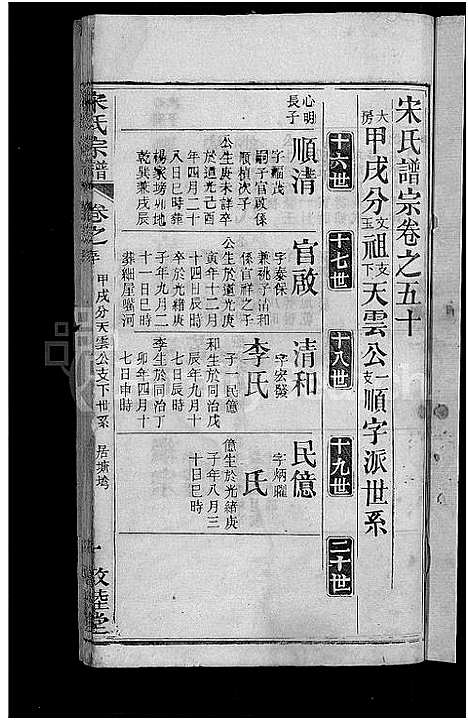 宋氏譜宗卷之五十
大房甲戌分玉文祖下支天雲公一支順字派世系
十六世
十七世
十八世
十九世
二十世
心明長子
順清
字福茂
嗣子官啟係
順楨次子
公生庚未詳卒
於道光己酉
年四月二十
八日巳時葬
楊家塝卯地
乾巽兼戌辰
官啟
字泰保
兼祧子清和
係官祥之子
公生於道光庚
寅年十二月
十四日辰時
卒於光緒庚
子年九月二
十一日巳時
葬細屋嘴河
清和
字宏發
李氏
子一民億
和生於同治戊
辰年九月十
七日辰時
李生於同治丁
卯年四月十
七日申時
民億
字炳曜
氏
億生於光緒庚
子年八月三
十日巳時
宋氏宗譜
卷之
甲戌分天雲公支下世系
居塘塆
一
敦睦堂